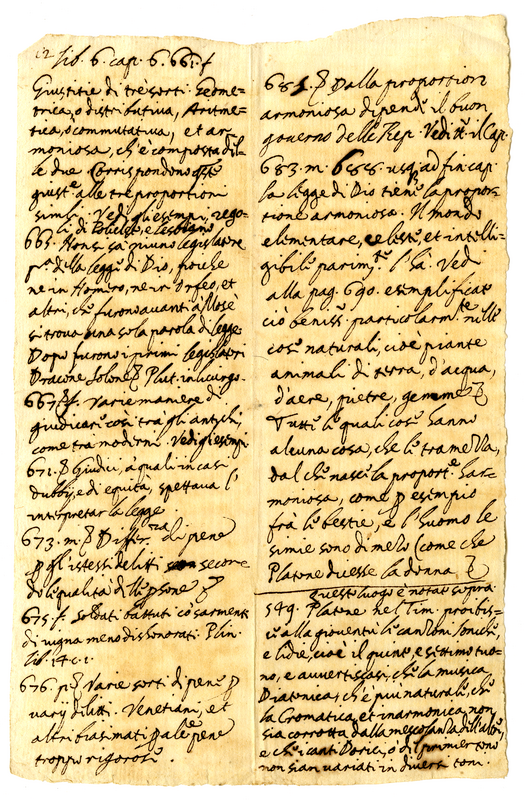 12 lib. 6. cap. 6. 661. f
Giustitie di tre sorti. Geome=
trica, o distributiva, Aritme=
tica, o commutativa, et ar=
moniosa, ch'è composta del=
le due. Corrispondono q.ste
giust.e alle tre proportioni
simili. Vedi gli esempi, rego=
li di Policlet.e, e Lesbiano
665. Non si sà niuno legislatore
p.a della legge di Dio, poiche
ne in Homero, ne in Orfeo, et
altri, che furono avanti a Mosè
si trova una sola parola di legge.
Dopo furono i primi legislatori
Dracone Solone Plut. in Licurgo.
667. f. Varie maniere di
giudicare così trà gli antichi,
come tra moderni. Vedi gli esempi
671. Giudici, à quali in casi
dubbij, e di equità, spettava l'
interpretar la legge.
673. m. Differ.za di pene
p gl'istessi delitti secon=
do la qualità delle psone
675. f. Soldati battuti cō sarmenti
di vigna meno dissonorati. Plin.
lib. 14. c. 1.
676. pr. Varie sorti di pene p
varij delitti. Venetiani, et
altri biasimati p ale pene
troppo rigorose.
681. Dalla proportion
armoniosa dipende il buon
governo delle Rep. Vedi tt.o il Cap.
683. m. 688. usq. ad fin. cap.
la legge di Dio tiene la propor=
tione armoniosa. Il mondo
elementare, celeste, et intelli=
gibile parim.te l'hà. Vedi
alla pag. 690. esemplificato
ciò beniss. particolarm.te nelle
cose naturali, cioe piante
animali di terra, d'acqua,
d'aere, pietre, gemme
Tutti le quali cose hanno
alcuna cosa, che li tramezza,
dal che nasce la proport.e har=
moniosa, come p esempio
frà le bestie, e l'huomo le
simie sono di mezo (come che
Platone dicesse la donna
questo luogo è notat. sopra
549. Platone nel Tim. proibis=
ce alla gioventù le canzoni Ioniche,
e lidie, cioè il quinto, e settimo tuo=
no, e avvertisca si, che la musica
Diatonica, ch'è piu naturale, che
la Cromatica, et inarmonica, non
sia corrotta dalla mescolanza dell'altre,
e che i canti Dorici, ò del primier tono
non sian variati in diversi toni.